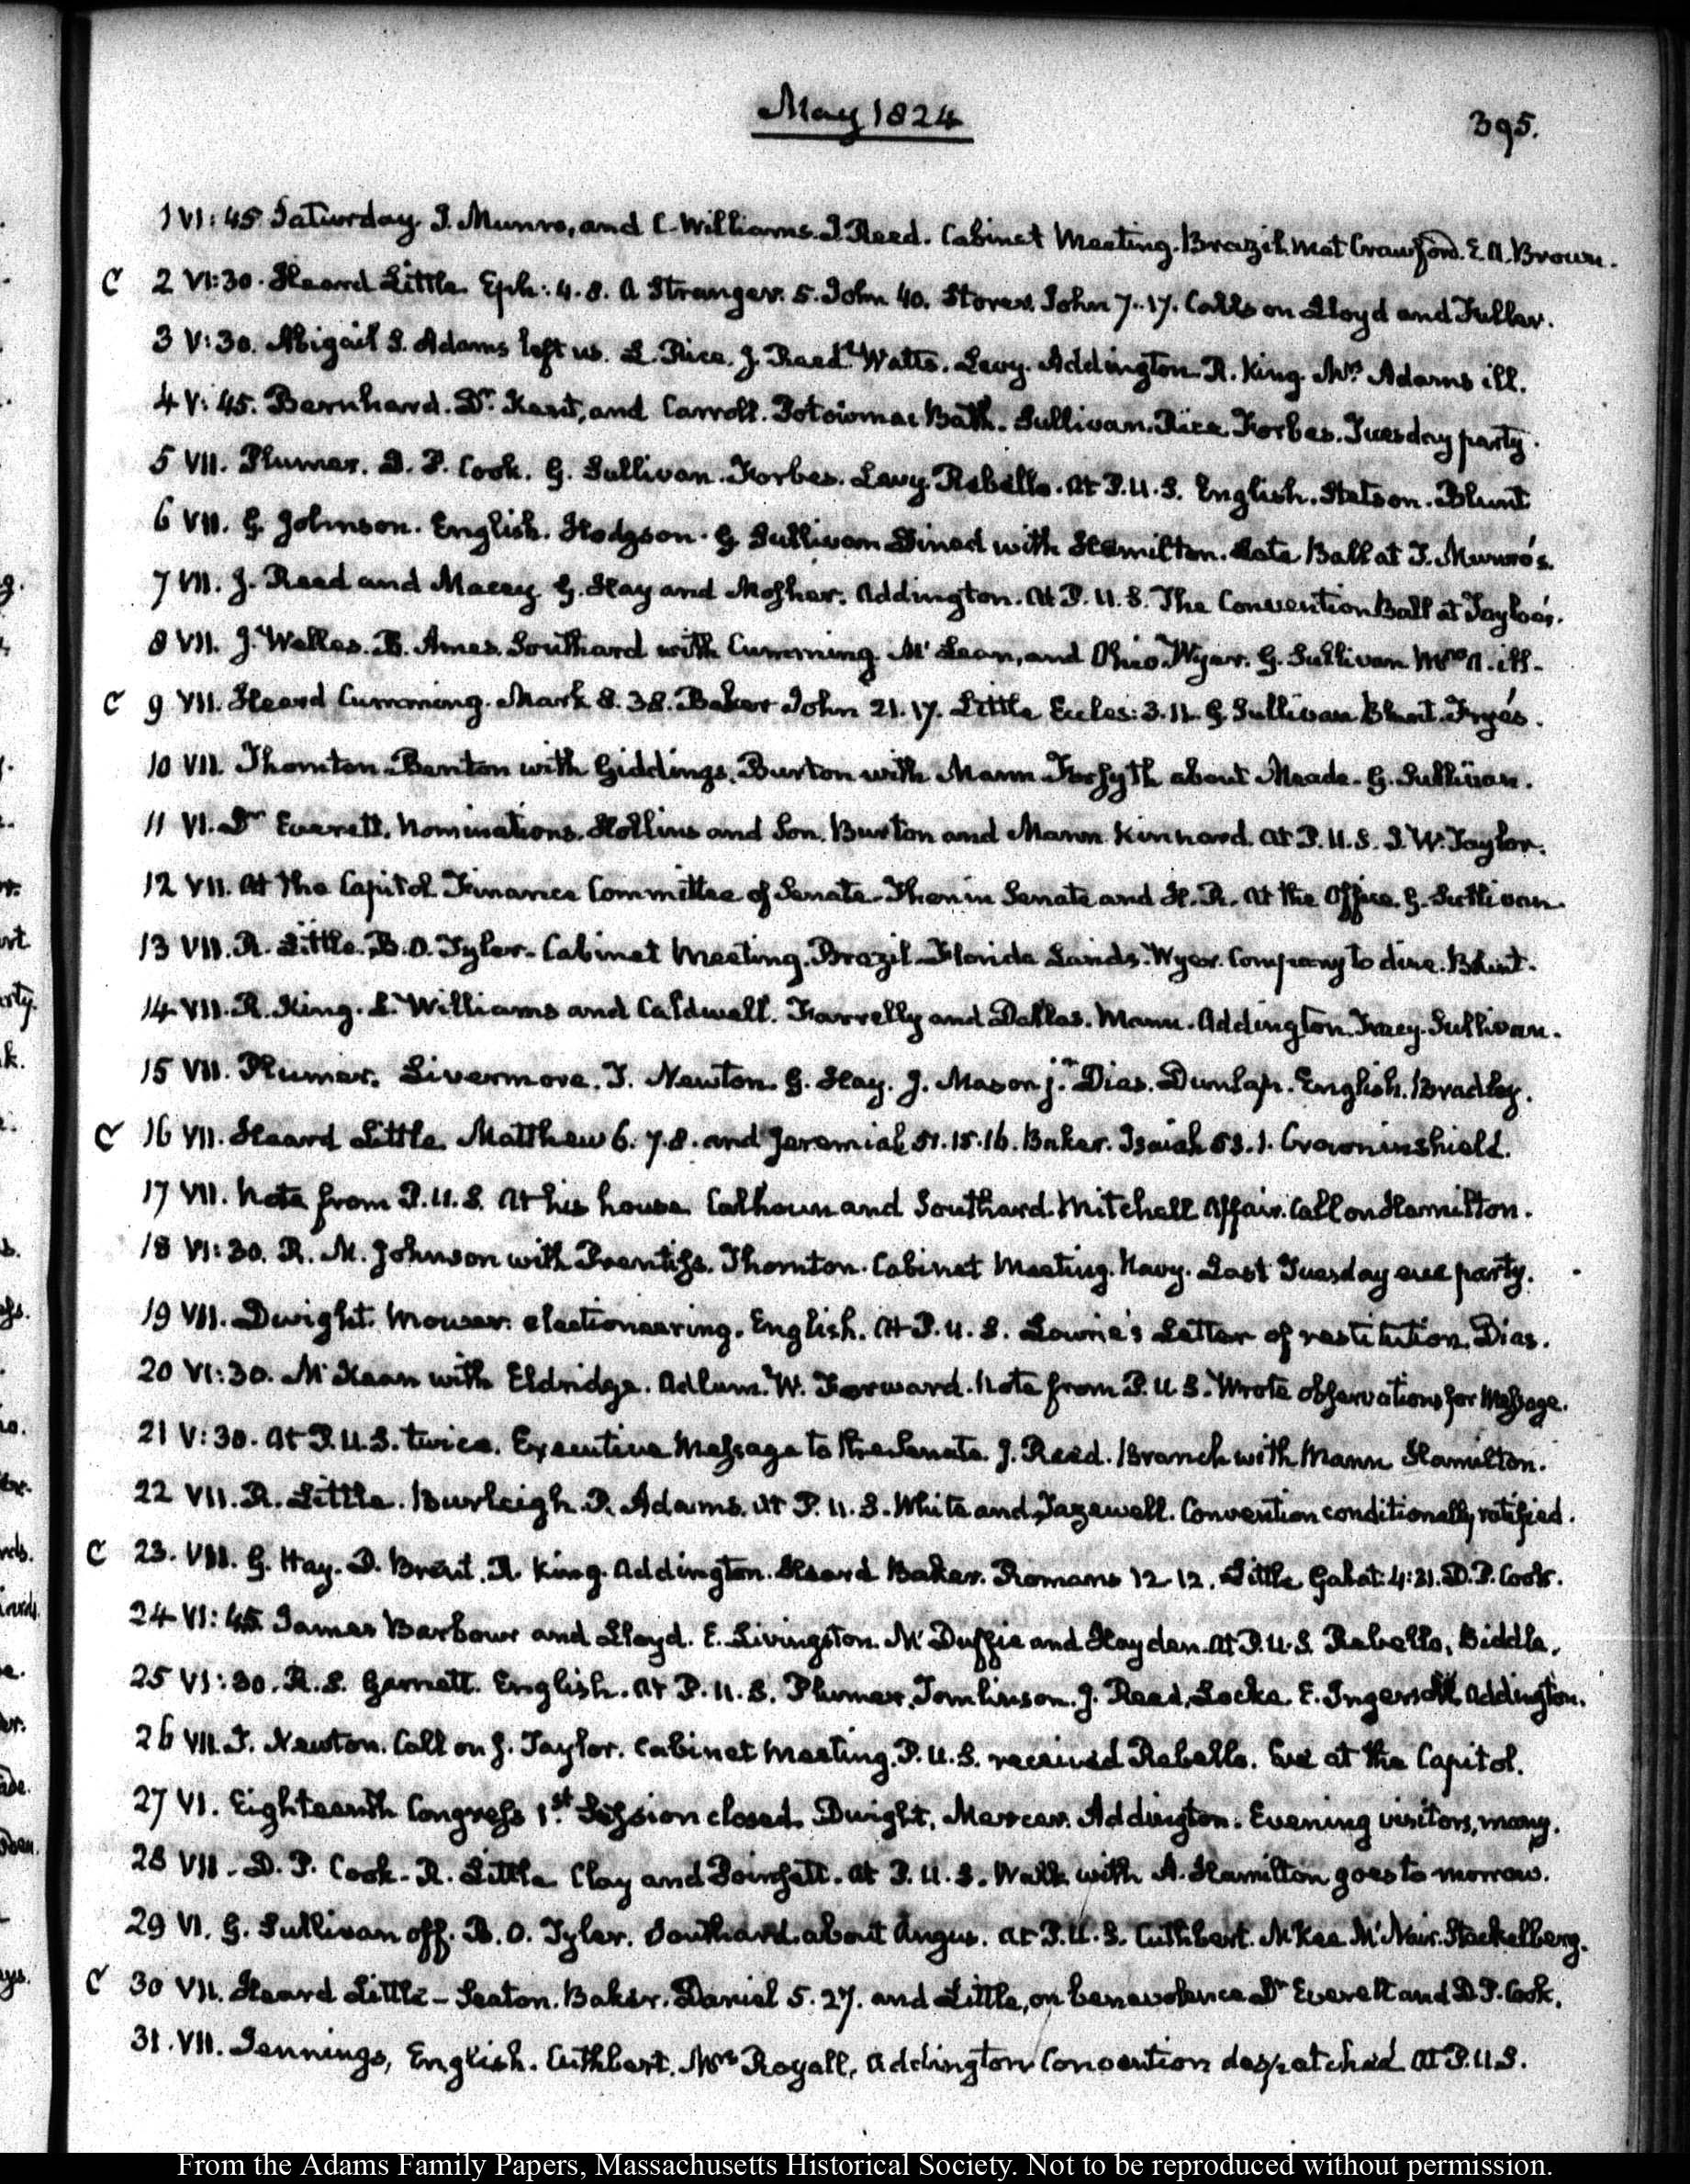 May 1824
395.
1 VI:45. Saturday. I. Munro, and C. Williams. J. Reed. Cabinet Meeting. Brazil. met Crawford. E. A. Brown.
C 2 VI:30. Heard Little. Eph: 4. 8. A Stranger. 5. John 40. Storer. John 7. 17. Calls on Lloyd and Fuller.
3 V:30. Abigail S. Adams left us. L. Rice. J. Reed. Watts. Levy. Addington. R. King. Mrs. Adams ill.
4 V:45. Bernhard. Dr. Kent, and Carroll. Potowmac Bath. Sullivan. Rice. Forbes. Tuesday party.
5 VII. Plumer. D. P. Cook. G. Sullivan. Forbes. Levy. Rebello. At P.U.S. English. Stetson. Blunt
6 VII. G. Johnson. English. Hodgson. G. Sullivan. Dined with Hamilton. Late Ball at T. Munro's.
7 VII. J. Reed and Macey. G. Hay and Mosher. Addington. At P.U.S. The Convention Ball at Tayloe's.
8 VII. J. Welles. B. Ames. Southard with Cumming. McLean, and Ohio. Wyer. G. Sullivan. Mrs. A. ill.
C 9 VII. Heard Cumming. Mark 8. 38. Baker John 21. 17. Little Eccles: 3. 11. G. Sullivan. Blunt. Frye's.
10 VII. Thornton. Benton with Giddings. Burton with Mann. Forsyth about Meade. G. Sullivan.
11 VI. Dr. Everett. Nominations. Hollins and Son. Burton and Mann. Kinnard. At P.U.S. J. W. Taylor.
12 VII. At the Capitol. Finance Committee of Senate. Then in Senate and H. R. At the Office. G. Sullivan.
13 VII. R. Little. B. O. Tyler. Cabinet Meeting. Brazil. Florida Lands. Wyer. Company to dine. Blunt.
14 VII. R. King. L. Williams and Caldwell. Farrelly and Dallas. Mann. Addington. Tracy. Sullivan.
15 VII. Plumer. Livermore. T. Newton. G. Hay. J. Mason jr. Dias. Dunlap. English. Bradley.
C 16 VII. Heard Little. Matthew 6. 7. 8. and Jeremiah 51. 15. 16. Baker. Isaiah 53. 1. Crowninshield.
17 VII. Note from P.U.S. At his house. Calhoun and Southard. Mitchell Affair. Call on Hamilton.
18 VI:30. R. M. Johnson with Prentiss. Thornton. Cabinet Meeting. Navy. Last Tuesday eve party.
19 VII. Dwight. Mower. electioneering. English. At P.U.S. Lowrie's Letter of restitution. Dias.
20 VI:30. McKean with Eldridge. Adlum. W. Forward. Note from P.U.S. Wrote observations for Message.
21 V:30. At P.U.S. twice. Executive Message to the Senate. J. Reed. Branch with Mann. Hamilton.
22 VII. R. Little. Burleigh. P. Adams. At P.U.S. White and Tazewell. Convention conditionally ratified.
C 23. VII. G. Hay. D. Brent. R. King. Addington. Heard Baker. Romans 12. 12. Little Galat: 4:31. D. P. Cook.
24 VI:45. James Barbour and Lloyd. E. Livingston. McDuffie and Hayden. At P.U.S. Rebello, Biddle.
25 VI:30. R. S. Garnett. English. At P.U.S. Plumer. Tomlinson. J. Reed. Locke. E. Ingersoll. Addington.
26 VII. T. Newton. Call on J. Taylor. Cabinet Meeting. P.U.S. received Rebello. Eve at the Capitol.
27 VI. Eighteenth Congress 1st. Session closed. Dwight. Mercer. Addington. Evening visitors, many.
28 VII. D. P. Cook. R. Little. Clay and Poinsett. At P.U.S. Walk with A. Hamilton goes to morrow.
29 VI. G. Sullivan off. B. O. Tyler. Southard about Angus. At P.U.S. Cuthbert. McKee. McNair. Stackelberg.
C 30 VII. Heard Little – Seaton. Baker. Daniel 5. 27. and Little, on benevolence. Dr. Everett and D. P. Cook.
31. VII. Jennings, English. Cuthbert. Mrs. Royall, Addington. Convention despatched. At P.U.S.
From the Adams Family Papers, Massachusetts Historical Society. Not to be reproduced without permission.